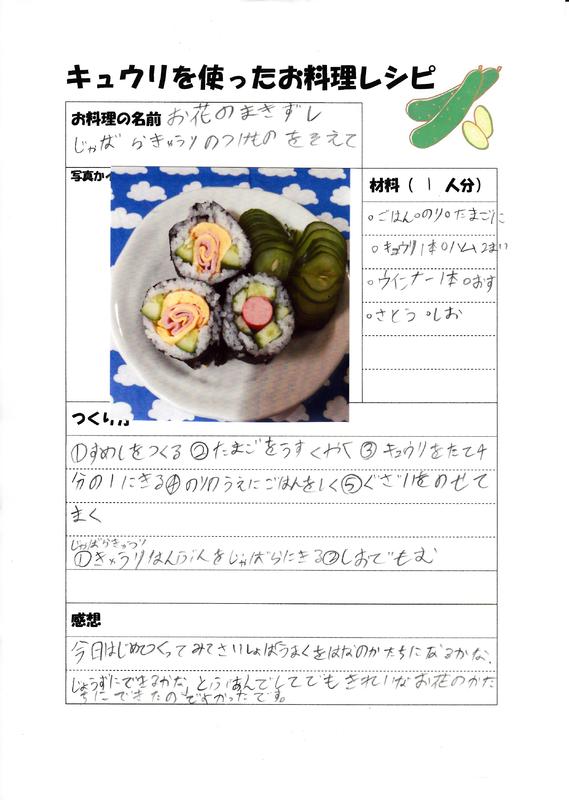 キュウリを使ったお料理レシピ
お料理の名前 お花のまきずし
じゃばらきゅうりのつけものをそえて
写真か
材料（ 1 人分）
○ごはん○のり○たまごに
○キュウリ1本○ハム2まい
○ウインナー1本○おす
○さとう ○しお
つくり方
①すめしをつくる ②たまごをうすくやく ③キュウリをたて4
分の1にきる④のりのうえにごはんをしく⑤ぐざいをのせて
まく
じゃばらきゅうり
①きゅうりはんぶんをじゃばらにきる②しおでもむ
感想
今日はじめつくってみてさいしょはうまくをはなのかたちになるかな、
じょうずにできるかな、としてでもきれいなお花のかた
ちにできたのでよかったです。